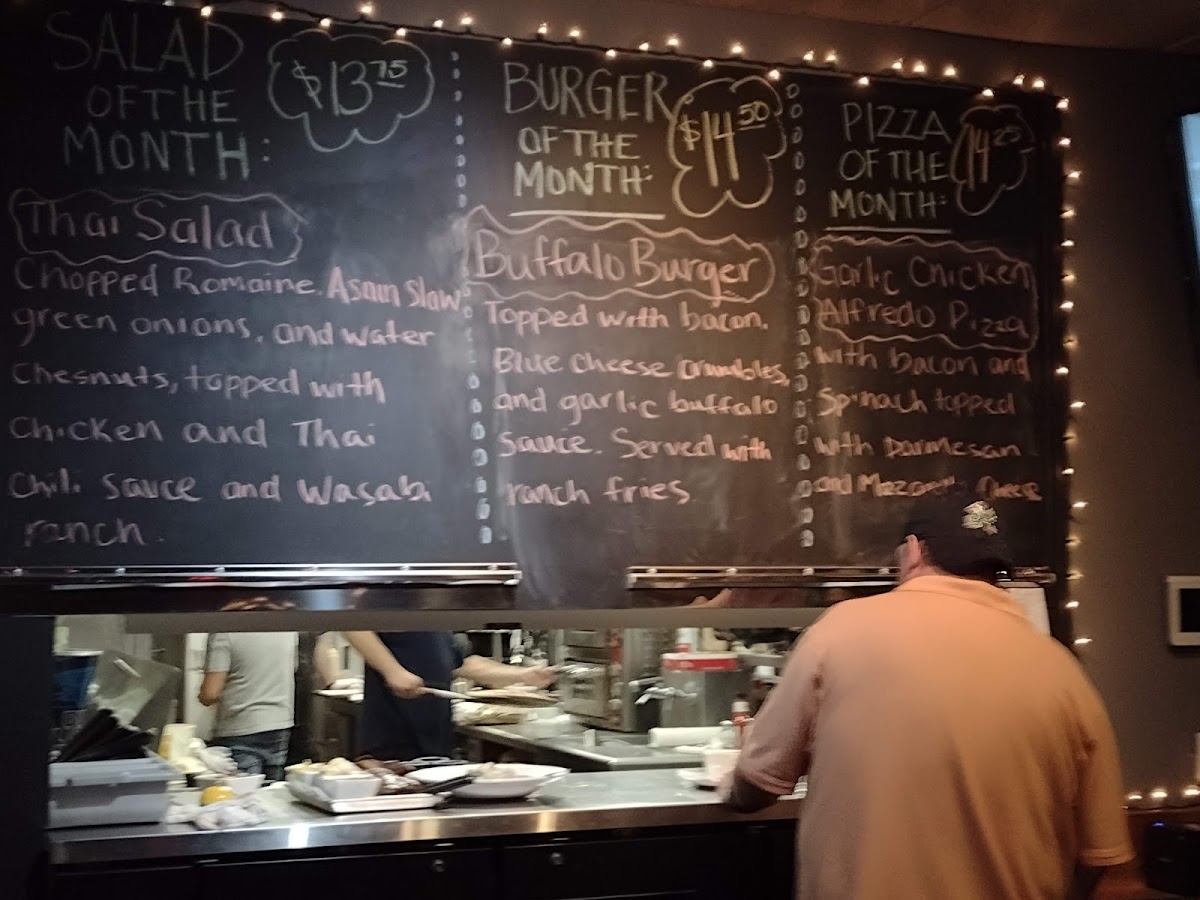 SALAD
OF THE
MONTH:
$13 75
Thai Salad
Chopped Romaine, Asain Slaw,
green onions, and water
Chesnuts, topped with
Chicken and Thai
Chili Sauce and Wasabi
ranch.
BURGER
OF THE
MONTH:
$14 50
Buffalo Burger
Topped with bacon,
Blue cheese crumbles,
and garlic buffalo
Sauce. Served with
ranch fries
PIZZA
OF THE
MONTH:
14 25
Garlic Chicken
Alfredo Pizza
with bacon and
Spinach topped
with Parmesan
and Cheese